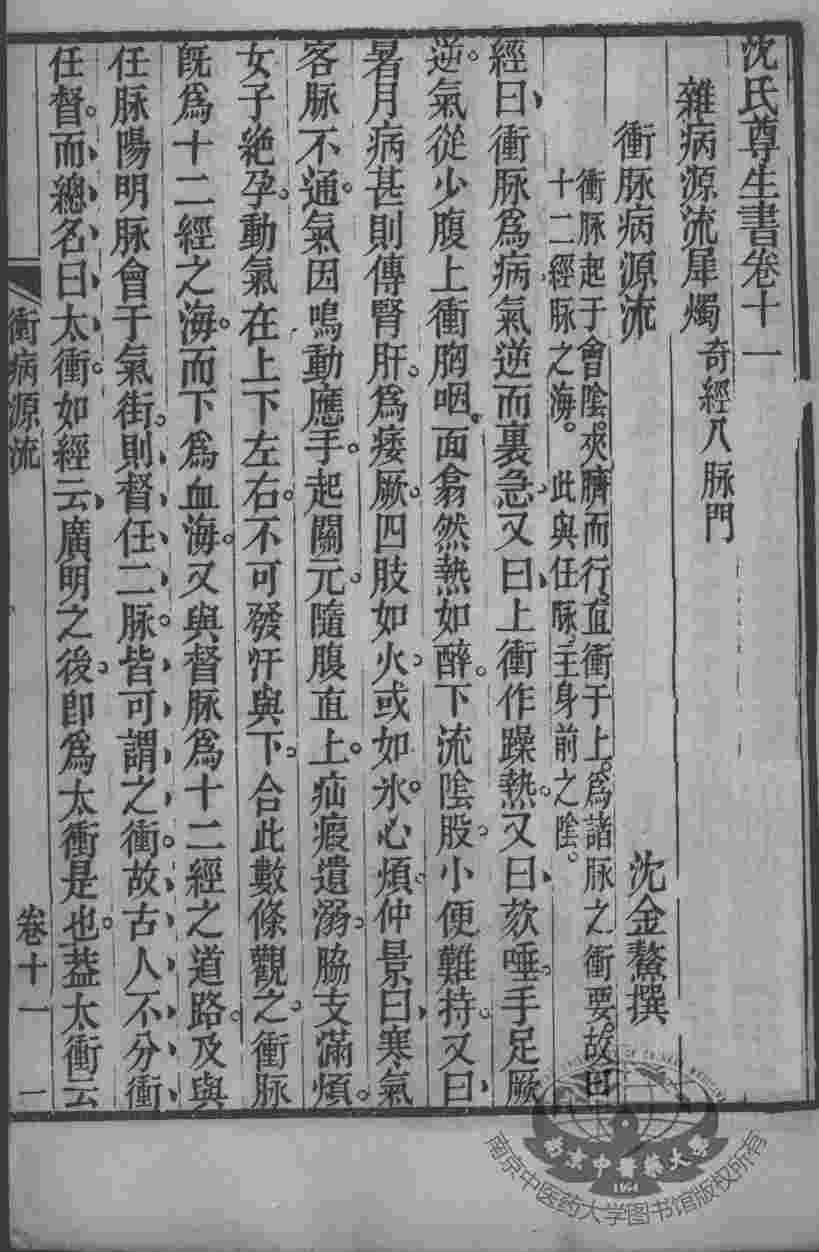 沈氏尊生書卷十一
雜病源流犀燭 奇經八脉門
衝脉病源流 沈金鰲撰
衝脉起于會陰。夾臍而行。直衝于上。爲諸脉之衝要。故曰
十二經脉之海。此與任脉、主身前之陰。
經曰、衝脉爲病氣逆而裏急。又曰、上衝作躁熱。又曰、欬唾。手足厥
逆。氣從少腹上衝胸咽。面翕然熱如醉。下流陰股。小便難持。又曰、
暑月病甚則傳腎肝。爲痿厥。四肢如火。或如氷。心煩。仲景曰、寒氣
客脉不通。氣因鳴動應手。起關元。隨腹直上。疝瘕遺溺。脇支滿煩。
女子絶孕。動氣在上下左右。不可發汗與下。合此數條觀之。衝脉
旣爲十二經之海。而下爲血海。又與督脉爲十二經之道路。及與
任脉陽明脉會于氣街。則督任二脉。皆可謂之衝。故古人不分衝
任督。而總名曰太衝。如經云、廣明之後。即爲太衝是也。葢太衝云
衝病源流
卷十一
一
南京中醫藥大學
1954
南京中医药大学图书馆版权所有